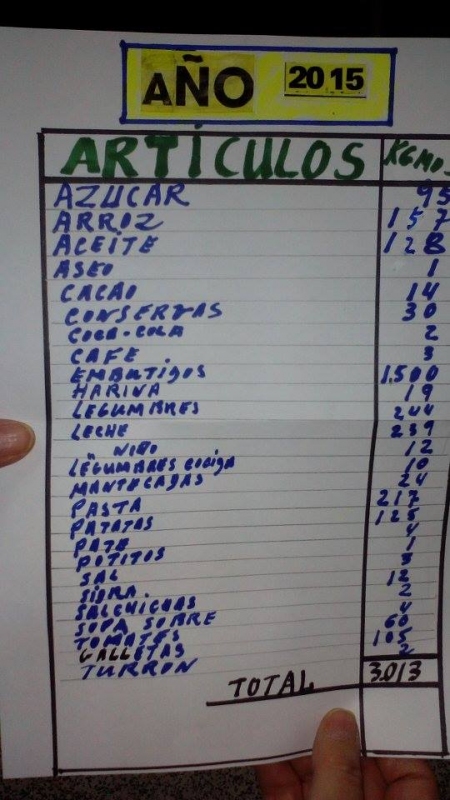 AÑO 2015
ARTÍCULOS KGMO.
AZUCAR 95
ARROZ 157
ACEITE 128
ASEO 1
CACAO 14
CONSERVAS 30
COCA-COLA 2
CAFE. 3
EMBUTIDOS 1.500
HARINA 19
LEGUMBRES 244
LECHE 239
" NIÑO 12
LEGUMBRES COCIDA 10
MANTECADAS 24
PASTA 217
PATATAS 125
PATE 4
POTITOS 1
SAL 3
SIDRA. 12
SALCHICHAS 2
SOPA SOBRE 4
TOMATES 60
GALLETAS 105
TURRON 2
TOTAL 3.013